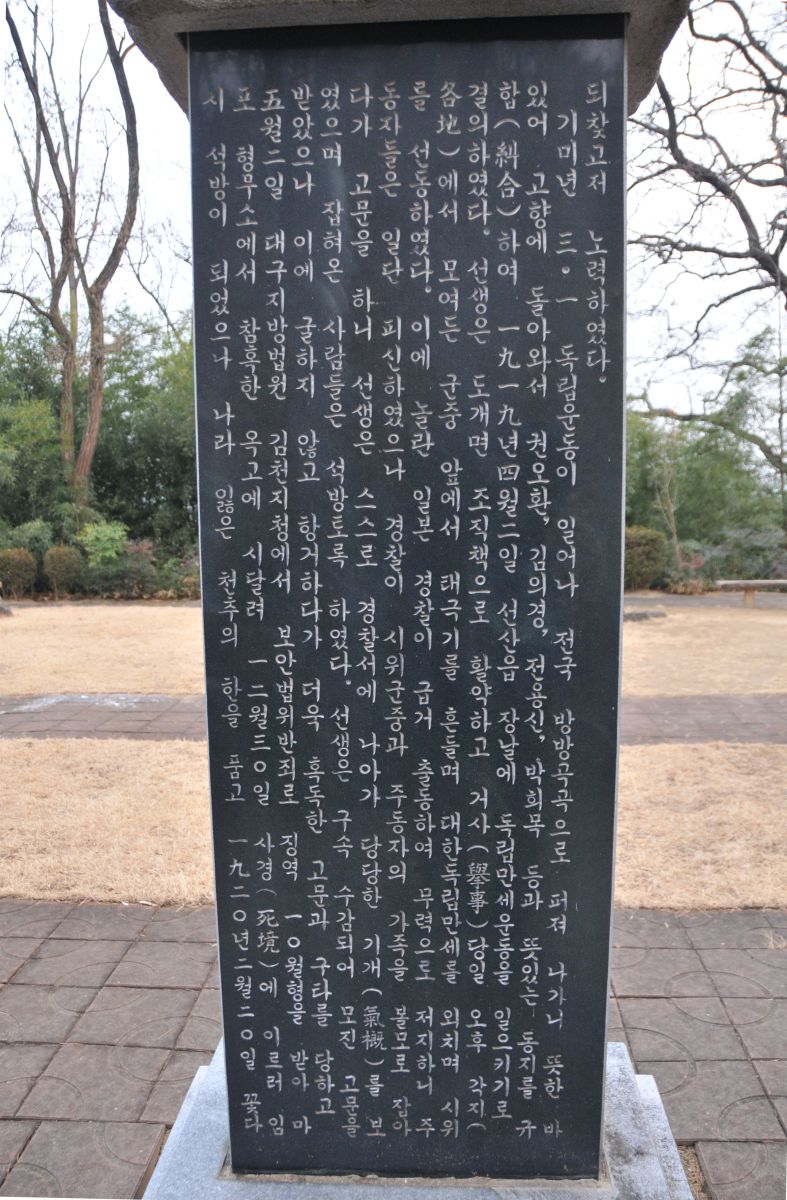 되찾고저 노력하였다.
기미년 三·一 독립운동이 일어나 전국 방방곡곡으로 퍼져 나가니 뜻한 바
있어 고향에 돌아와서 권오환, 김의경, 전용신, 박희목 등과 뜻있는 동지를 규
합(糾合)하여 一九一九년 四월 二일 선산읍 장날에 독립만세운동을 일으키기로
결의하였다. 선생은 도개면 조직책으로 활약하고 거사(擧事)당일 오후 각지(
各地)에서 모여든 군중 앞에서 태극기를 흔들며 대한독립만세를 외치며 시위
를 선동하였다. 이에 놀란 일본 경찰이 급거 출동하여 무력으로 저지하니 주
동자들은 일단 피신하였으나 경찰이 시위군중과 주동자의 가족을 볼모로 잡아
다가 고문을 하니 선생은 스스로 경찰서에 나아가 당당한 기개(氣槪)를 보
였으며 잡혀온 사람들은 석방토록 하였다. 선생은 구속 수감되어 모진 고문을
받았으나 이에 굴하지 않고 항거하다가 더욱 혹독한 고문과 구타를 당하고
五월 二일 대구지방법원 김천지청에서 보안법위반죄로 징역 一○월형을 받아 마
포 형무소에서 참혹한 옥고에 시달려 一二월 三○일 사경(死境)에 이르러 임
시 석방이 되었으나 나라 잃은 천추의 한을 품고 一九二○년 二월 二○일 꽃다